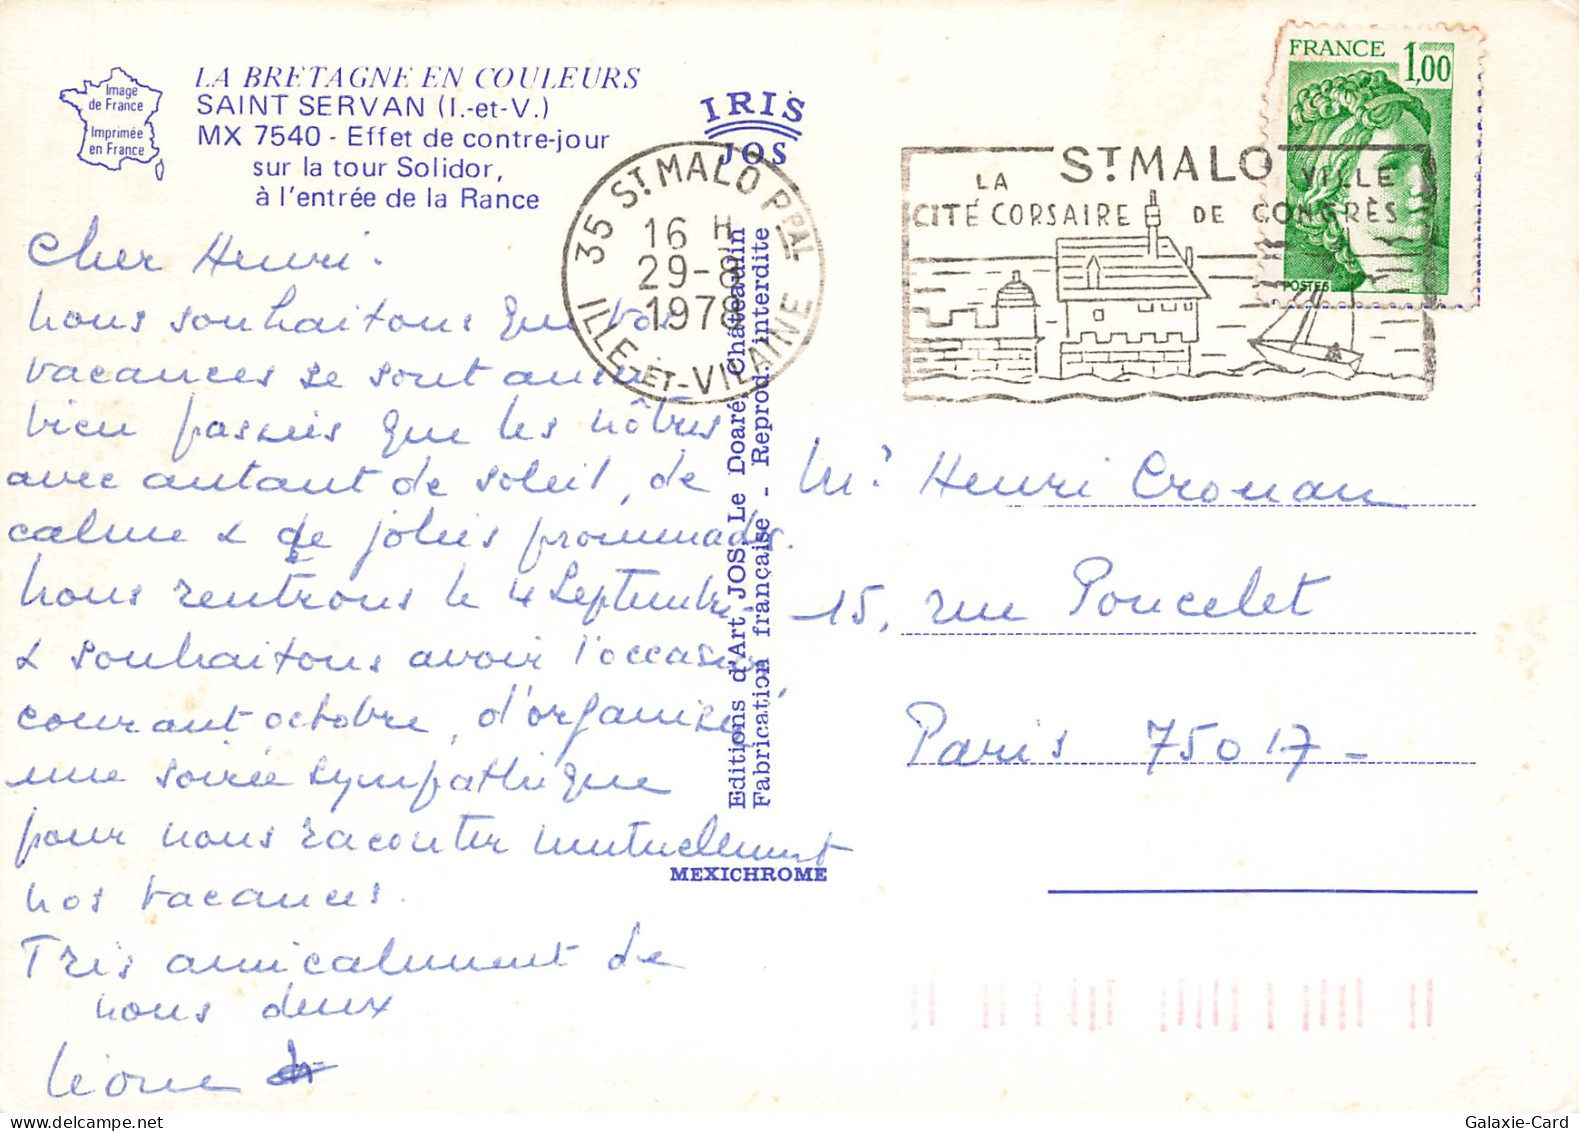 Image
de France
Imprimée
en France
LA BRETAGNE EN COULEURS
SAINT SERVAN (I.-et-V.)
MX 7540 - Effet de contre-jour
sur la tour Solidor,
à l'entrée de la Rance
IRIS
JOS
35 ST. MALO PPAL
16 H
29-8
1978
ILLE-ET-VILAINE
ST. MALO
LA CITÉ CORSAIRE
VILLE DE CONGRÈS
FRANCE 1,00
POSTES
Cher Henri.
Nous souhaitons que vos
vacances se sont aussi
bien passées que les nôtres
avec autant de soleil, de
calme & de jolies promenades.
Nous rentrons le 4 Septembre
& souhaitons avoir l'occasion,
courant octobre, d'organiser
une soirée sympathique
pour nous raconter mutuellement
nos vacances.
Très amicalement de
nous deux
Editions d'Art JOS, Le Doaré, Châteaulin
Fabrication française - Reprod. interdite
MEXICHROME
Mr. Henri Crouan
15, rue Poncelet
Paris 75017-
Galaxie-Card